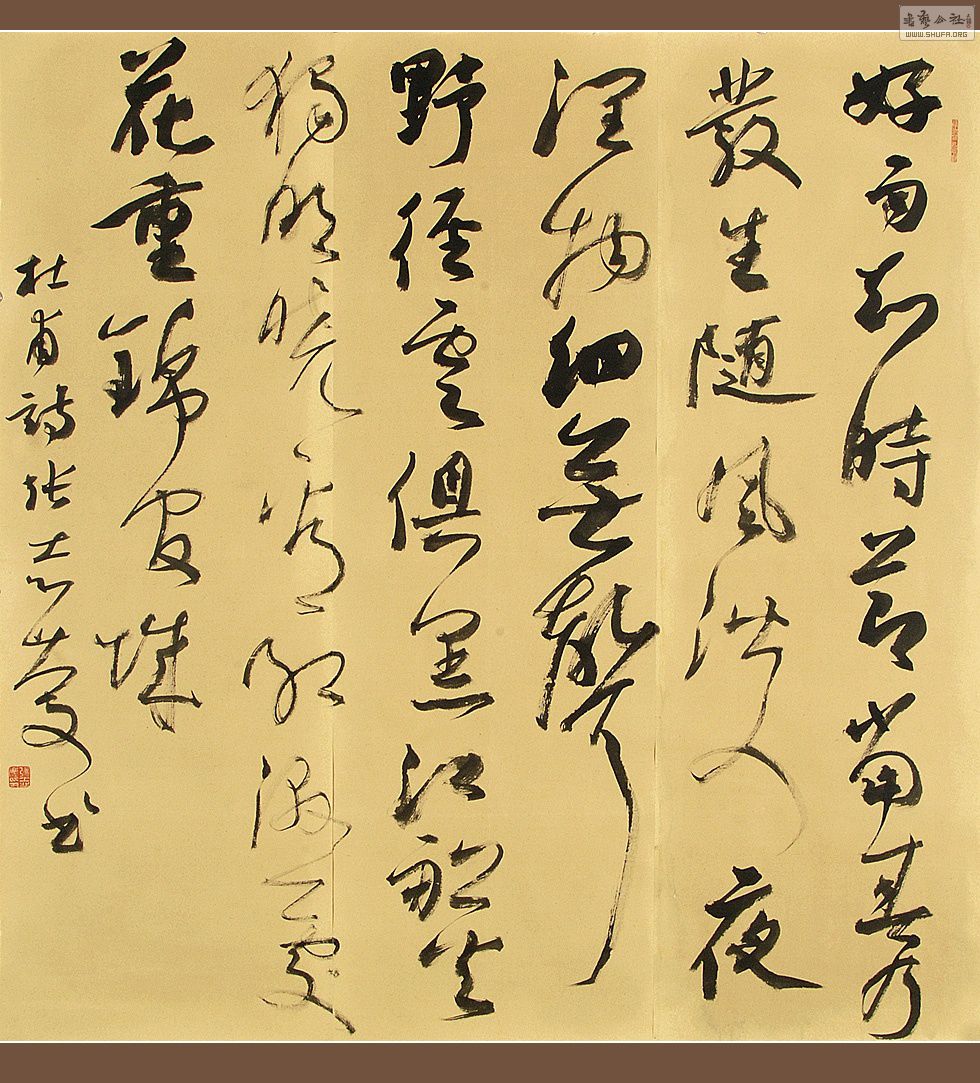 好雨知時節當春乃
發生随風潛入夜
潤物細無聲
野徑雲俱黑江船火
獨明曉看紅濕處
花重錦官城
杜甫詩張志慶書
書藝公社
WWW.SHUFA.ORG